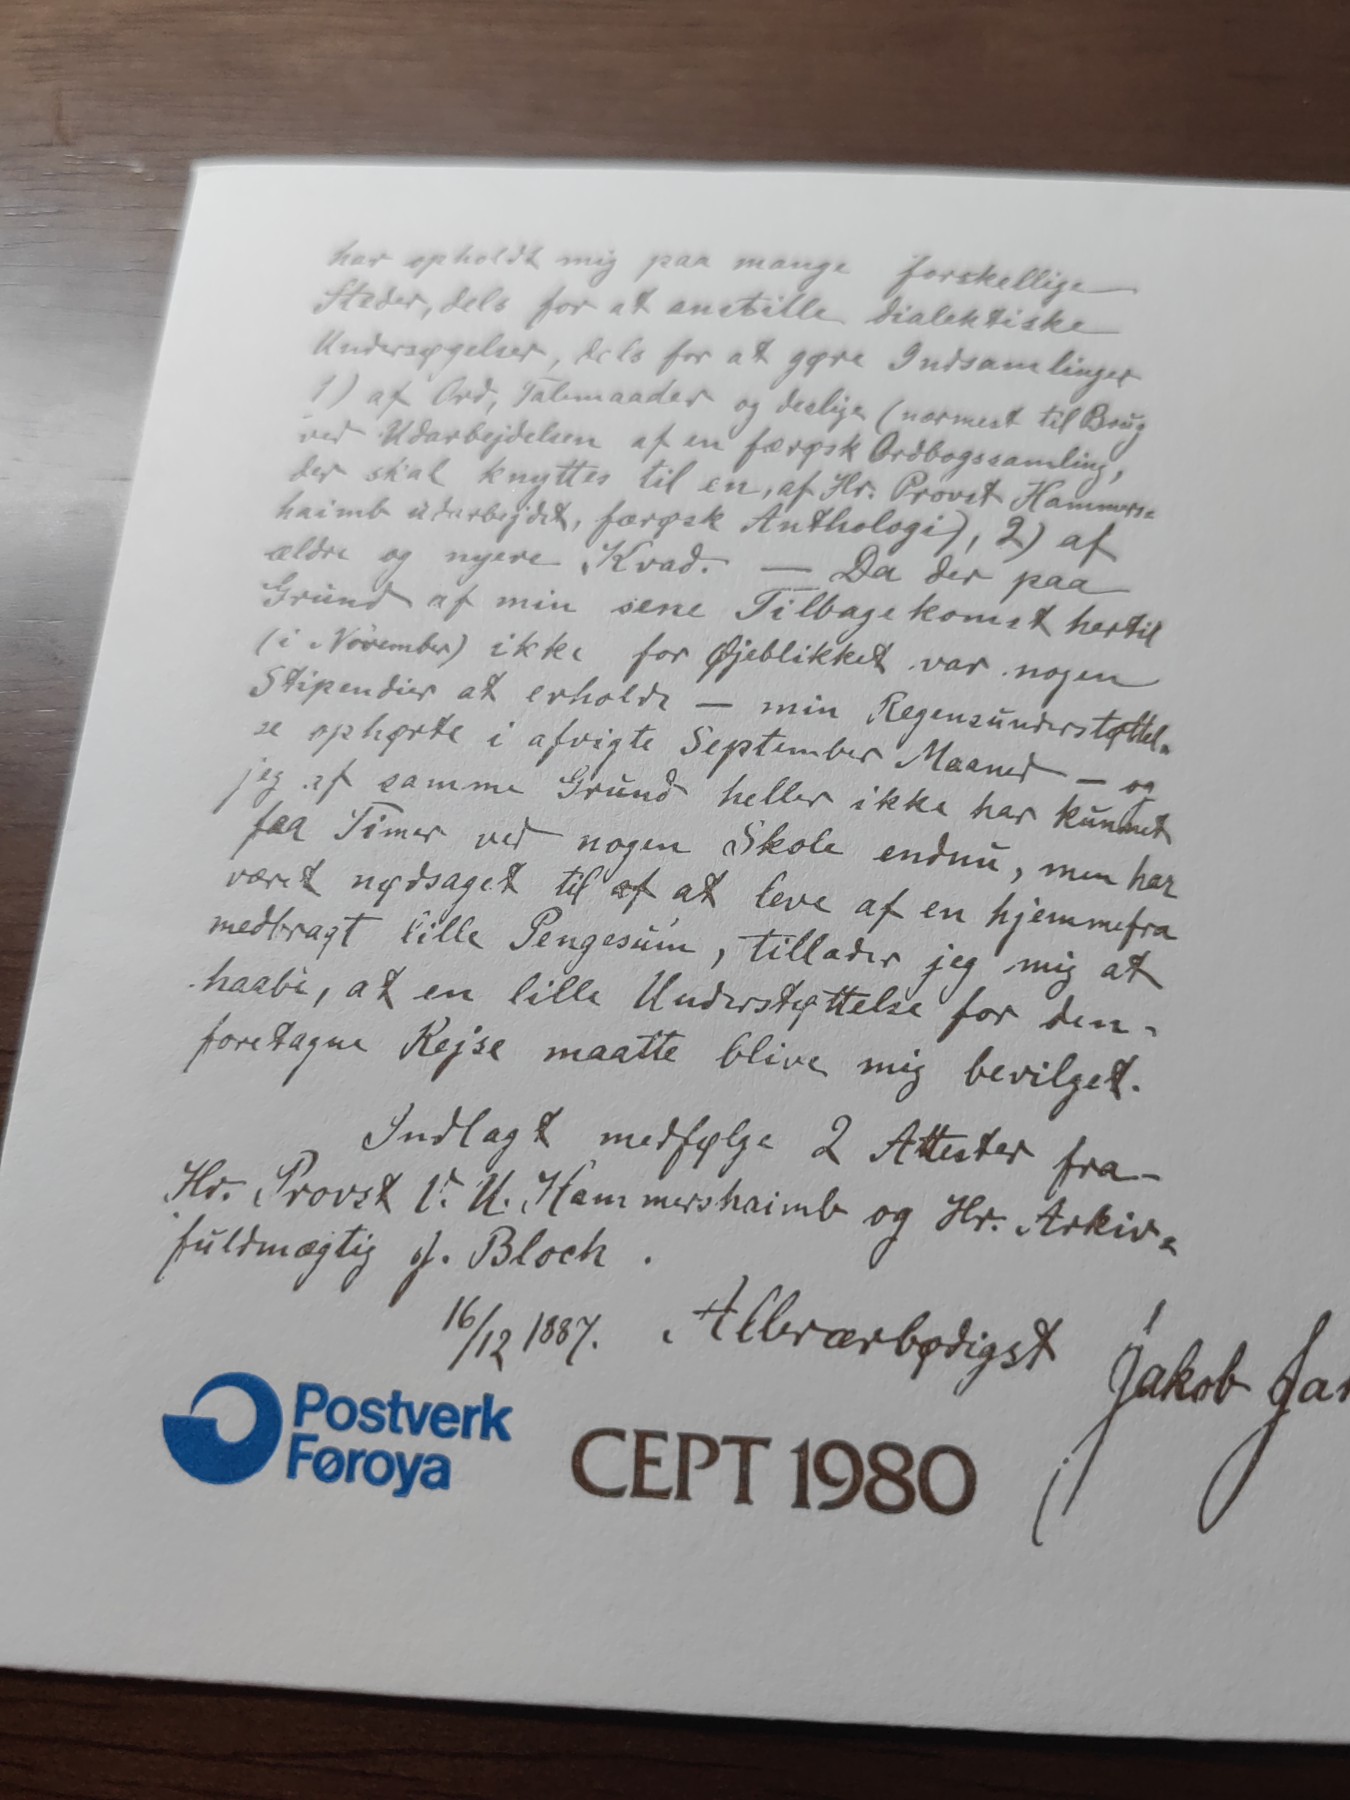 har opholdt mig paa mange forskellige
Steder, dels for at anstille dialektiske
Undersøgelser, dels for at gøre Indsamlinger
1) af Ord, Talemaader og deslige (nærmest til Brug
ved Udarbejdelsen af en færøsk Ordbogssamling,
der skal knyttes til en, af Hr. Provst Hammers=
haimb udarbejdet, færøsk Anthologi), 2) af
ældre og nyere Kvad. — Da der paa
Grund af min sene Tilbagekomst hertil
(i November) ikke for Øjeblikket var nogen
Stipendier at erholde — min Regensunderstøttel=
se ophørte i afvigte September Maaned — og
jeg af samme Grund heller ikke har kunnet
faa Timer ved nogen Skole endnu, men har
været nødsaget til af at leve af en hjemmefra
medbragt lille Pengesum, tillader jeg mig at
haabe, at en lille Understøttelse for den
foretagne Rejse maatte blive mig bevilget.
Indlagt medfølge 2 Attester fra
Hr. Provst V. U. Hammershaimb og Hr. Arkiv=
fuldmægtig J. Bloch.
16/12 1887. Allerærbødigst Jakob Jak
Postverk
Føroya
CEPT 1980